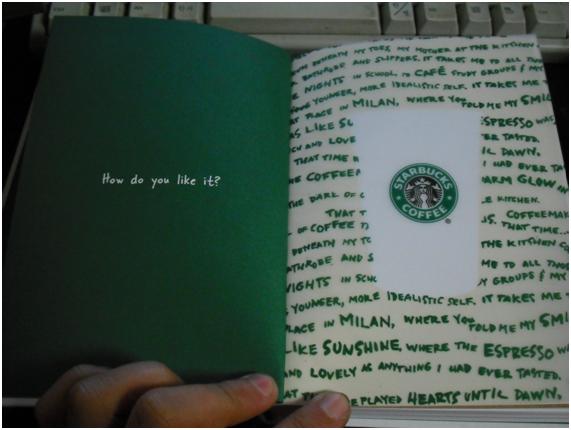 How do you like it?
BENEATH MY TOES, MY MOTHER AT THE KITCHEN
BATHROBE AND SLIPPERS. IT TAKES ME TO ALL
NIGHTS IN SCHOOL, TO CAFÉ STUDY GROUPS & MY
YOUNGER, MORE IDEALISTIC SELF. IT TAKES ME
PLACE IN MILAN, WHERE YOU TOLD ME MY
LIKE ESPRESSO WAS
AND EVER TASTED
THAT TIME UNTIL DAWN.
I HAD EVER
WARM GLOW
THE DARK OF KITCHEN.
THAT
OF COFFEE THAT TIME...
BENEATH MY THE KITCHEN
AND ME TO ALL
NIGHTS IN GROUPS & MY
YOUNGER, MORE IDEALISTIC SELF. IT TAKES ME
PLACE IN MILAN, WHERE YOU TOLD ME MY
LIKE SUNSHINE, WHERE THE ESPRESSO
AND LOVELY AS ANYTHING I HAD EVER TASTED.
PLAYED HEARTS UNTIL DAWN.
STARBUCKS
COFFEE
®